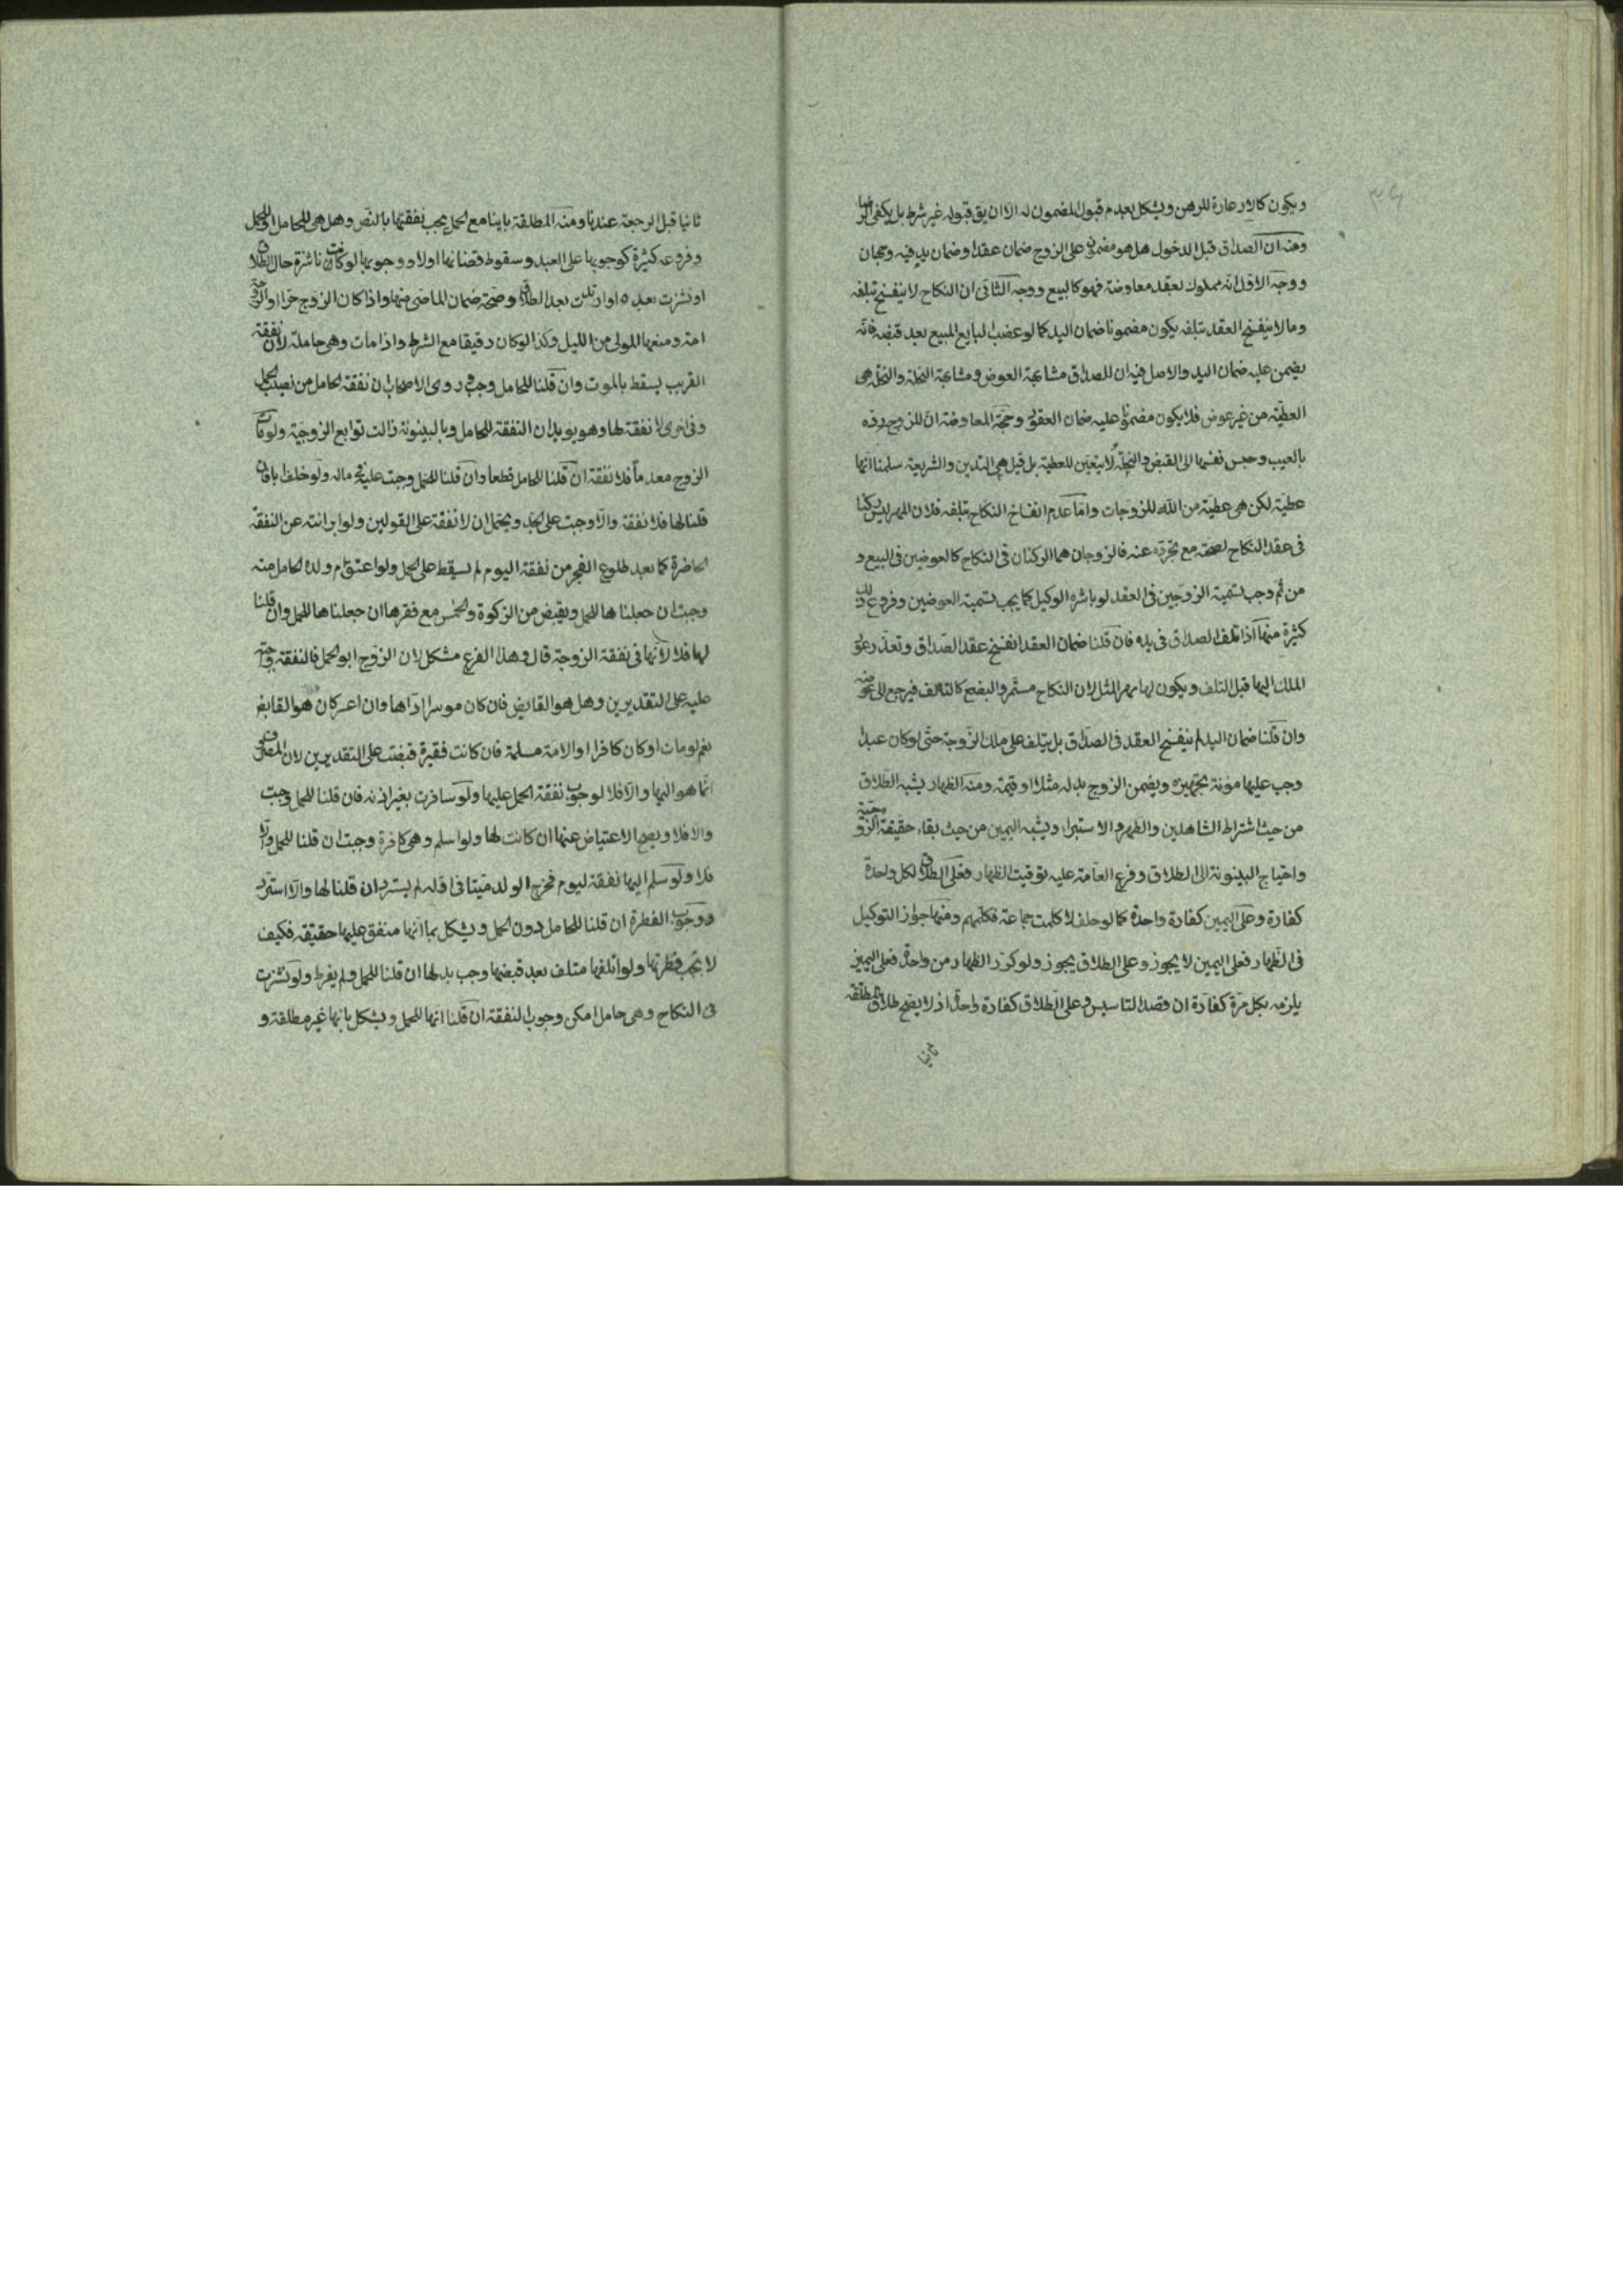 ويكون كالاعارة للرهن ويشكل بعدم قبول المضمون له الا ان يق قبوله غير شرط بل يكفى الرضا
ومنه ان الصداق قبل الدخول هل هو مضمون على الزوج ضمان عقد او ضمان يد فيه وجهان
ووجه الاول انه مملوك بعقد معاوضة فهو كالبيع ووجه الثانى ان النكاح لا ينفسخ بتلفه
وما لا ينفسخ العقد بتلفه يكون مضمونا ضمان اليد كما لو غصب البايع المبيع بعد قبضه فانه
يضمن عليه ضمان اليد والاصل فيه ان للصداق مشابهة العوض ومشابهة النحلة والنحلة هى
العطية من غير عوض فلا يكون مضمونا عليه ضمان العقود وحجة المعاوضة ان للزوج رده
بالعيب وحبس نفسها الى القبض والنحلة لا يتعين للعطية بل قيل هى التدين والشريعة سلمنا انها
عطية لكن هى عطية من الله للزوجات واما عدم انفساخ النكاح بتلفه فلان المهر ليس ركنا
فى عقد النكاح لصحته مع تجرده عنه فالزوجان هما الركنان فى النكاح كالعوضين فى البيع و
من ثم وجب تسمية الزوجين فى العقد لو باشره الوكيل كما يجب تسمية العوضين وفروع ذلك
كثيرة منها اذا تلف الصداق فى يده فان قلنا ضمان العقد انفسخ عقد الصداق وتعذر عود
الملك اليها قبل التلف ويكون لها مهر المثل لان النكاح مستمر والبضع كالتالف فيرجع الى عوضه
وان قلنا ضمان اليد لم ينفسخ العقد فى الصداق بل يتلف على ملك الزوجة حتى لو كان عبدا
وجب عليها مؤنة تجهيزه ويضمن الزوج بدله مثلا او قيمة ومنه الظهار يشبه الطلاق
من حيث اشتراط الشاهدين والطهر والاستبراء ويشبه اليمين من حيث بقاء حقيقة الزوجية
واحتياج البينونة الى الطلاق وفرع العامة عليه توقيت الظهار فعلى الطلاق لكل واحدة
كفارة وعلى اليمين كفارة واحدة كما لو حلف لا كلمت جماعة فكلمهم ومنها جواز التوكيل
فى الظهار فعلى اليمين لا يجوز وعلى الطلاق يجوز ولو كرر الظهار من واحدة فعلى اليمين
يلزمه بكل مرة كفارة ان قصد التاسيس وعلى الطلاق كفارة واحدة اذ لا يصح طلاق المطلقة
ثانيا
ثانيا قبل الرجعة عندنا ومنه المطلقة باينا مع الحمل يجب نفقتها بالنص وهل هى للحامل او للحمل
وفروعه كثيرة كوجوبها على العبد وسقوط قضائها اولا ووجوبها لو كانت ناشزة حال الطلاق
او نشزت بعده او ارتدت بعد الطلاق وصحة ضمان الماضى منها واذا كان الزوج حرا والزوجة
امة ومنعها المولى من الليل وكذا لو كان رقيقا مع الشرط واذا مات وهى حاملة لان نفقة
القريب يسقط بالموت وان قلنا للحامل وجب وروى الاصحاب ان نفقة الحامل من نصيب الحمل
وفى اخرى لا نفقة لها وهو يؤيد ان النفقة للحامل وبالبينونة زالت توابع الزوجية ولو كان
الزوج معدما فلا نفقة ان قلنا للحامل قطعا وان قلنا للحمل وجبت عليه فى ماله ولو خلف ابا فان
قلنا لها فلا نفقة والا وجبت على الجد ويحتمل ان لا نفقة على القولين ولو ابرأته عن النفقة
الحاضرة كما بعد طلوع الفجر من نفقة اليوم لم يسقط على الحمل ولو اعتق ام ولده الحامل منه
وجبت ان جعلناها للحمل ويقبض من الزكوة والخمس مع فقرها ان جعلناها للحمل وان قلنا
لها فلا لانها فى نفقة الزوجة قال وهذا الفرع مشكل لان الزوج ابو الحمل فالنفقة واجبة
عليه على التقديرين وهل هو القابض فان كان موسرا اداها وان اعسر كان هو القابض
نعم لو مات او كان كافرا والامة مسلمة فان كانت فقيرة قبضت على التقديرين لان المصروف
انما هو اليها والا فلا لوجوب نفقة الحمل عليها ولو سافرت بغير اذنه فان قلنا للحمل وجبت
والا فلا ويصح الاعتياض عنها ان كانت لها ولو اسلم وهى كافرة وجبت ان قلنا للحمل والا
فلا ولو سلم اليها نفقة ليوم فخرج الولد ميتا فى اوله لم يسترد ان قلنا لها والا استرد
ووجوب الفطرة ان قلنا للحامل دون الحمل ويشكل بما انها منفق عليها حقيقة فكيف
لا تجب فطرتها ولو اتلفها متلف بعد قبضها وجب بدلها ان قلنا للحمل ولم يفرط ولو نشزت
فى النكاح وهى حامل امكن وجوب النفقة ان قلنا انها للحمل ويشكل بانها غير مطلقة و